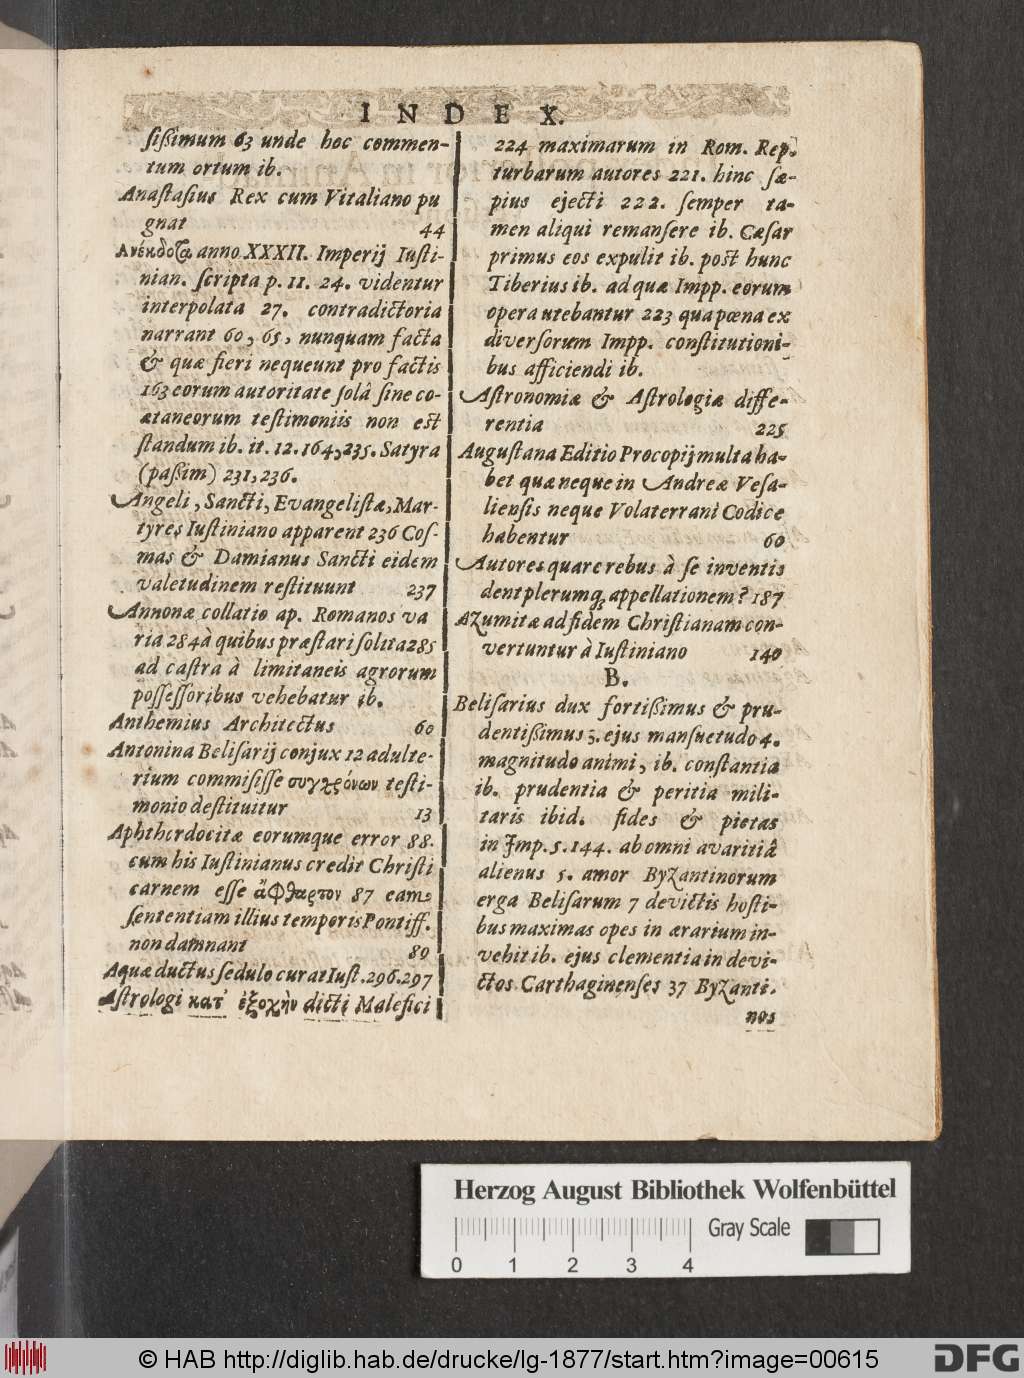 INDEX.
sissimum 63 unde hoc commen-
tum ortum ib.
Anastasius Rex cum Vitaliano pu
gnat 44
Ανέκδοτα anno XXXII. Imperij Iusti-
nian. scripta p. 11. 24. videntur
interpolata 27. contradictoria
narrant 60, 65, nunquam facta
& quæ fieri nequeunt pro factis
163 eorum autoritate solâ sine co-
ætaneorum testimoniis non est
standum ib. it. 12. 164, 235. Satyra
(passim) 231, 236.
Angeli, Sancti, Evangelistæ, Mar-
tyres Iustiniano apparent 236 Cos-
mas & Damianus Sancti eidem
valetudinem restituunt 237
Annonæ collatio ap. Romanos va
ria 284 à quibus præstari solita 285
ad castra à limitaneis agrorum
possessoribus vehebatur ib.
Anthemius Architectus 60
Antonina Belisarij conjux 12 adulte-
rium commisisse συγχρόνων testi-
monio destituitur 13
Aphthordocitæ eorumque error 88.
cum his Iustinianus credit Christi
carnem esse ἄφθαρτον 87 eam
sententiam illius temporis Pontiff.
non damnant 89
Aquæ ductus sedulo curat Iust. 296. 297
Astrologi κατ' ἐξοχὴν dicti Malefici
224 maximarum in Rom. Rep.
turbarum autores 221. hinc sæ-
pius ejecti 222. semper ta-
men aliqui remansere ib. Cæsar
primus eos expulit ib. post hunc
Tiberius ib. ad quæ Impp. eorum
opera utebantur 223 qua pœna ex
diversorum Impp. constitutioni-
bus afficiendi ib.
Astronomiæ & Astrologiæ diffe-
rentia 225
Augustana Editio Procopij multa ha-
bet quæ neque in Andreæ Vesa-
liensis neque Volaterrani Codice
habentur 60
Autores quare rebus à se inventis
dent plerumq; appellationem? 187
Azumitæ ad fidem Christianam con-
vertuntur à Iustiniano 140
B.
Belisarius dux fortissimus & pru-
dentissimus 3. ejus mansuetudo 4.
magnitudo animi, ib. constantia
ib. prudentia & peritia mili-
taris ibid. fides & pietas
in Imp. 5. 144. ab omni avaritiâ
alienus 5. amor Byzantinorum
erga Belisarum 7 devictis hosti-
bus maximas opes in ærarium in-
vehit ib. ejus clementia in devi-
ctos Carthaginenses 37 Byzanti.
nos
Herzog August Bibliothek Wolfenbüttel
Gray Scale
0 1 2 3 4
© HAB http://diglib.hab.de/drucke/lg-1877/start.htm?image=00615
DFG